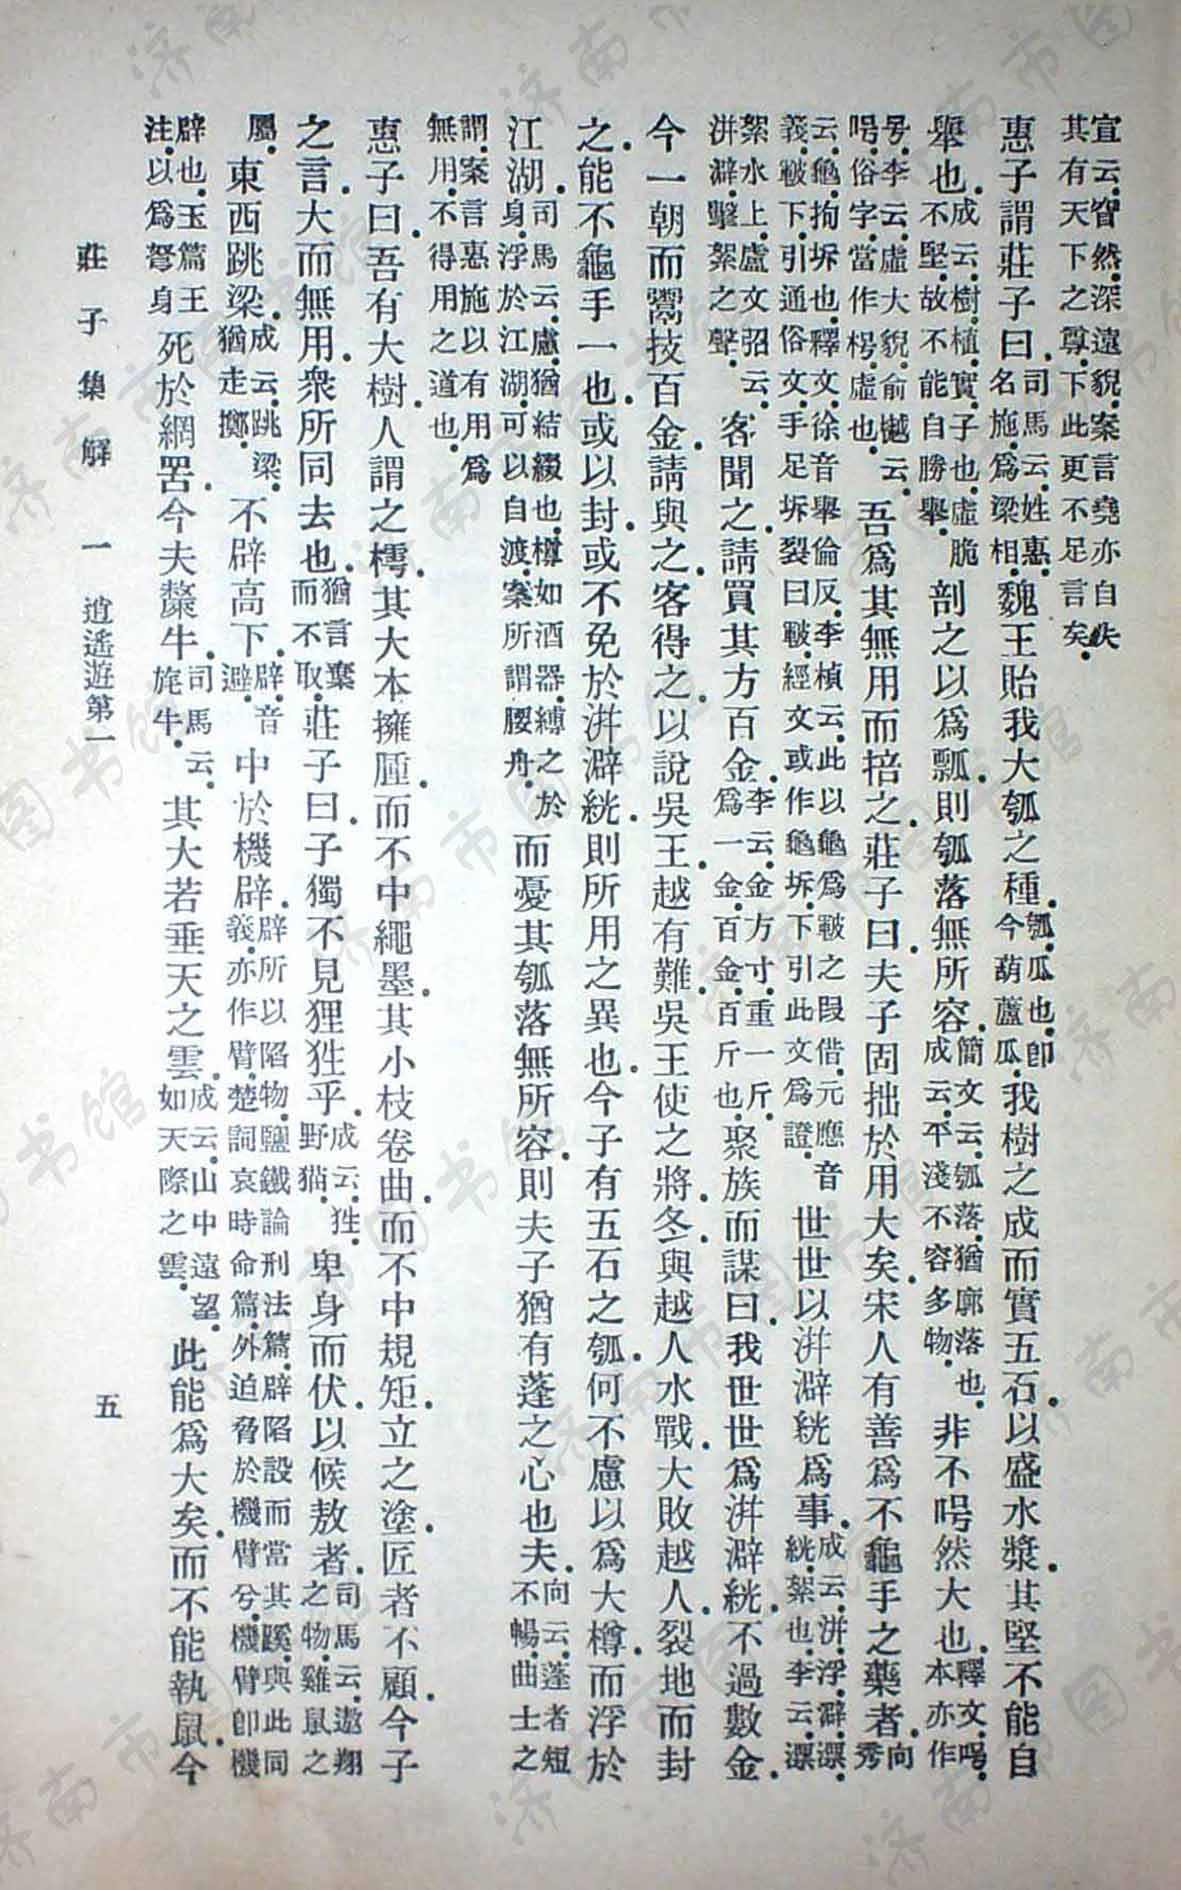 宣云。窅然。深遠貌。案言堯亦自失其有天下之尊。下此更不足言矣。
惠子謂莊子曰。司馬云。姓惠。名施。爲梁相。魏王貽我大瓠之種。瓠。瓜也。卽今葫蘆瓜。我樹之成而實五石。以盛水漿。其堅不能自
舉也。成云。樹。植。實。子也。虛脆不堅。故不能自勝舉。剖之以爲瓢。則瓠落無所容。簡文云。瓠落。猶廓落也。成云。平淺不容多物。非不呺然大也。釋文。呺。本亦作
号。李云。虛大貌。俞樾云。呺。俗字。當作枵。虛也。吾爲其無用而掊之。莊子曰。夫子固拙於用大矣。宋人有善爲不龜手之藥者。向秀
云。龜。拘坼也。釋文。徐音舉倫反。李楨云。此以龜爲皸之叚借。元應音義。皸下引通俗文。手足坼裂曰皸。經文或作龜坼。下引此文爲證。世世以洴澼絖爲事。成云。洴。浮。澼。漂。絖。絮也。李云。漂
絮水上。盧文弨云。洴澼。擊絮之聲。客聞之。請買其方百金。李云。金方寸。重一斤。爲一金。百金。百斤也。聚族而謀曰。我世世爲洴澼絖。不過數金。
今一朝而鬻技百金。請與之。客得之。以說吳王。越有難。吳王使之將。冬。與越人水戰。大敗越人。裂地而封
之。能不龜手一也。或以封。或不免於洴澼絖。則所用之異也。今子有五石之瓠。何不慮以爲大樽。而浮於
江湖。司馬云。慮。猶結綴也。樽如酒器。縛之於身。浮於江湖。可以自渡。案所謂腰舟。而憂其瓠落無所容。則夫子猶有蓬之心也夫。向云。蓬者短不暢。曲士之
謂。案言惠施以有用爲無用。不得用之道也。
惠子曰。吾有大樹。人謂之樗。其大本擁腫。而不中繩墨。其小枝卷曲。而不中規矩。立之塗。匠者不顧。今子
之言。大而無用。衆所同去也。猶言棄而不取。莊子曰。子獨不見狸狌乎。成云。狌。野猫。卑身而伏。以候敖者。司馬云。遨翔之物。雞鼠之
屬。東西跳梁。成云。跳梁。猶走擲。不辟高下。辟。音避。中於機辟。辟所以陷物。鹽鐵論刑法篇。辟陷設而當其蹊。與此同義。亦作臂。楚詞哀時命篇。外迫脅於機臂兮。機臂卽機
辟也。玉篇王注。以爲弩身死於網罟。今夫斄牛。司馬云。旄牛。其大若垂天之雲。成云。山中遠望。如天際之雲。此能爲大矣。而不能執鼠。今
莊子集解 一 逍遙遊第一 五